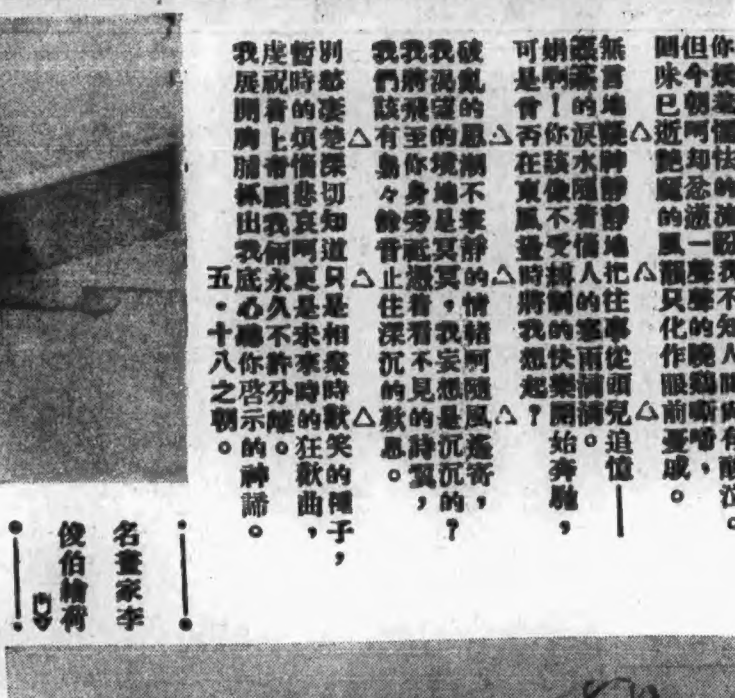 你怯的流盼我不知人間尚有酸泣。
但今朝啊却一聲聲的晚鷄啼，
回味已逝艷麗的風韻只化作眼前憂戚。
△ △
無言地凝神靜靜地把往事從頭兒追憶——
的淚水隨着情人的窓雨滴滴。
娟啊！你該像不受制的快樂開始奔馳，
可是曾否在東風裏時將我想起？
△ △ △
破亂的思潮不寧靜的情緒啊隨風遙寄，
我渴望的境地是冥冥，我妄想是沉沉的？
我將飛至你身旁祗憑着看不見的詩翼，
我們該有々餘音止住深沉的歎息。
△ △ △
別愁凄楚深切知道只是相聚時歡笑的種子，
暫時的煩惱悲哀啊更是未來時的狂歡曲，
虔祝着上帝願我倆永久不許分離。
我展開胸脯抓出我底心聽你啓示的神諦。
五・十八之朝。
名畫家李
俊伯繪荷